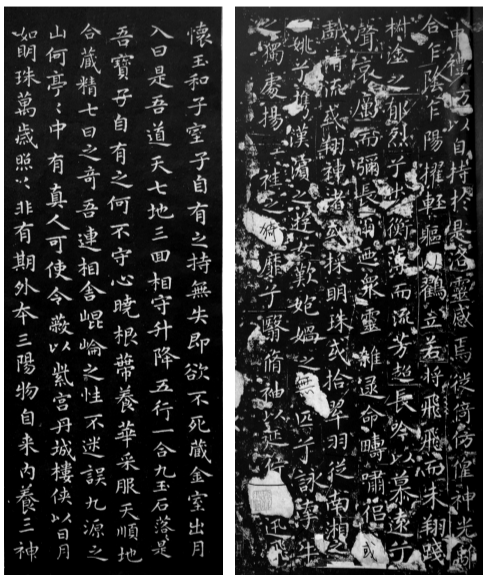 申禮防以自持於是洛靈感焉徙倚仿偟神光離
合乍陰乍陽擢輕軀以鶴立若將飛而未翔踐
椒塗之郁烈兮步衡薄而流芳超長吟以慕遠兮
聲哀厲而彌長爾迺衆靈雜遝命疇嘯侶或
戲清流或翔神渚或採明珠或拾翠羽從南湘之
姚兮攜漢濱之遊女歎匏媧之無匹兮詠牽牛
之獨處揚袿之猗靡兮翳脩袖以延佇迅飛
懷玉和子室子自有之持無失即欲不死藏金室出月
入日是吾道天七地三回相守升降五行一合九玉石落是
吾寶子自有之何不守心曉根蔕養華采服天順地
合藏精七日之奇吾連相舍崐崘之性不迷誤九源之
山何亭〻中有真人可使令蔽以紫宮丹城樓俠以日月
如明珠萬歲照〻非有期外本三陽物自来内養三神